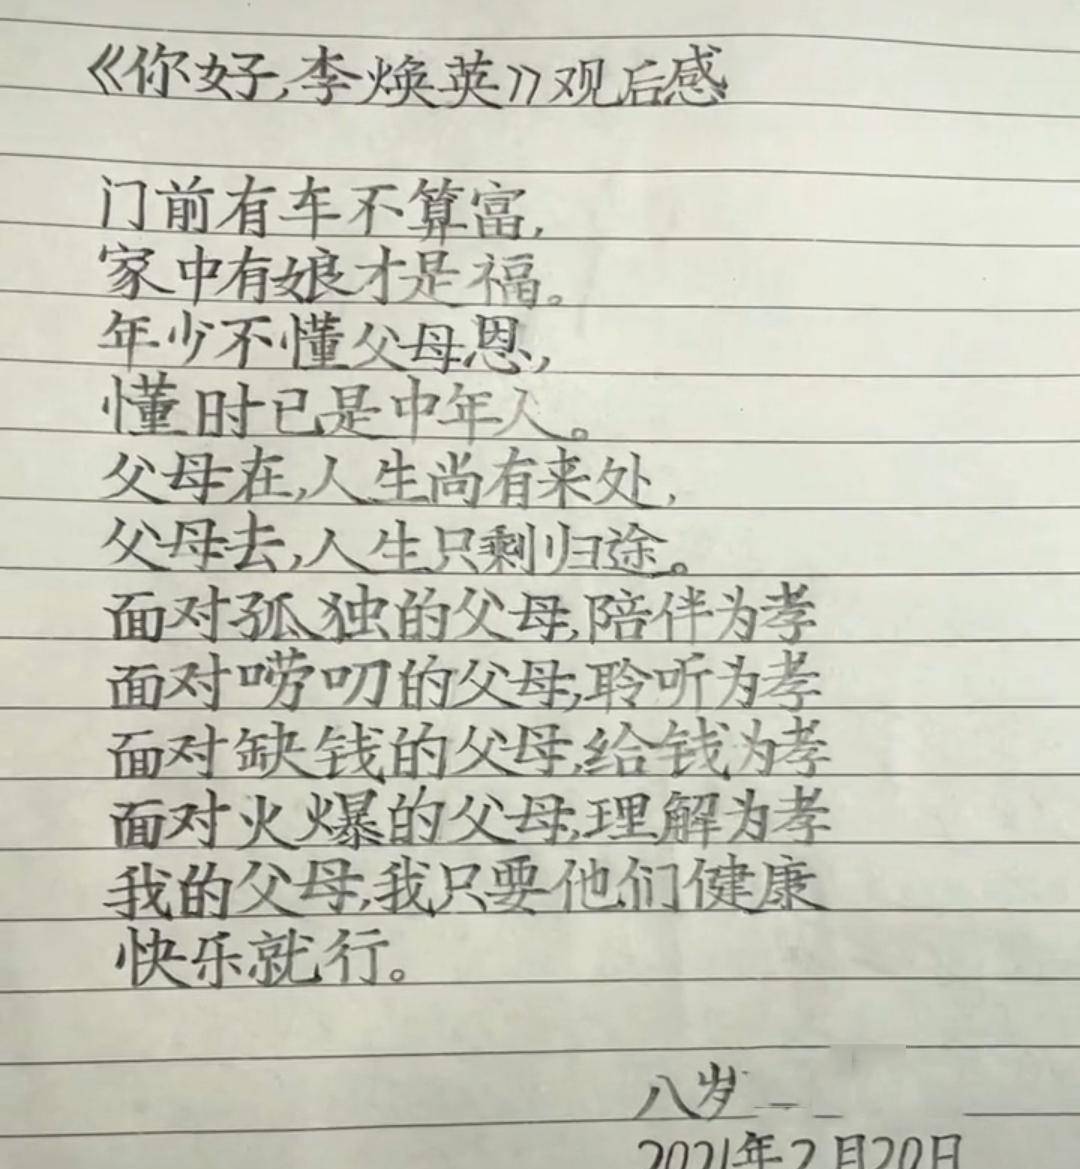 《你好,李焕英》观后感
门前有车不算富,
家中有娘才是福。
年少不懂父母恩,
懂时已是中年人。
父母在,人生尚有来处,
父母去,人生只剩归途。
面对孤独的父母,陪伴为孝
面对唠叨的父母,聆听为孝
面对缺钱的父母,给钱为孝
面对火爆的父母,理解为孝
我的父母,我只要他们健康
快乐就行。
八岁
2021年2月20日